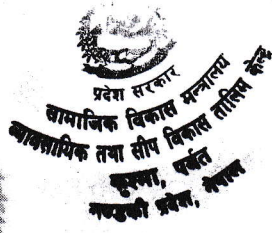 प्रदेश सरकार
सामाजिक विकास मन्त्रालय
व्यावसायिक तथा सीप विकास तालिम केन्द्र
कुश्मा, पर्वत
गण्डकी प्रदेश, नेपाल